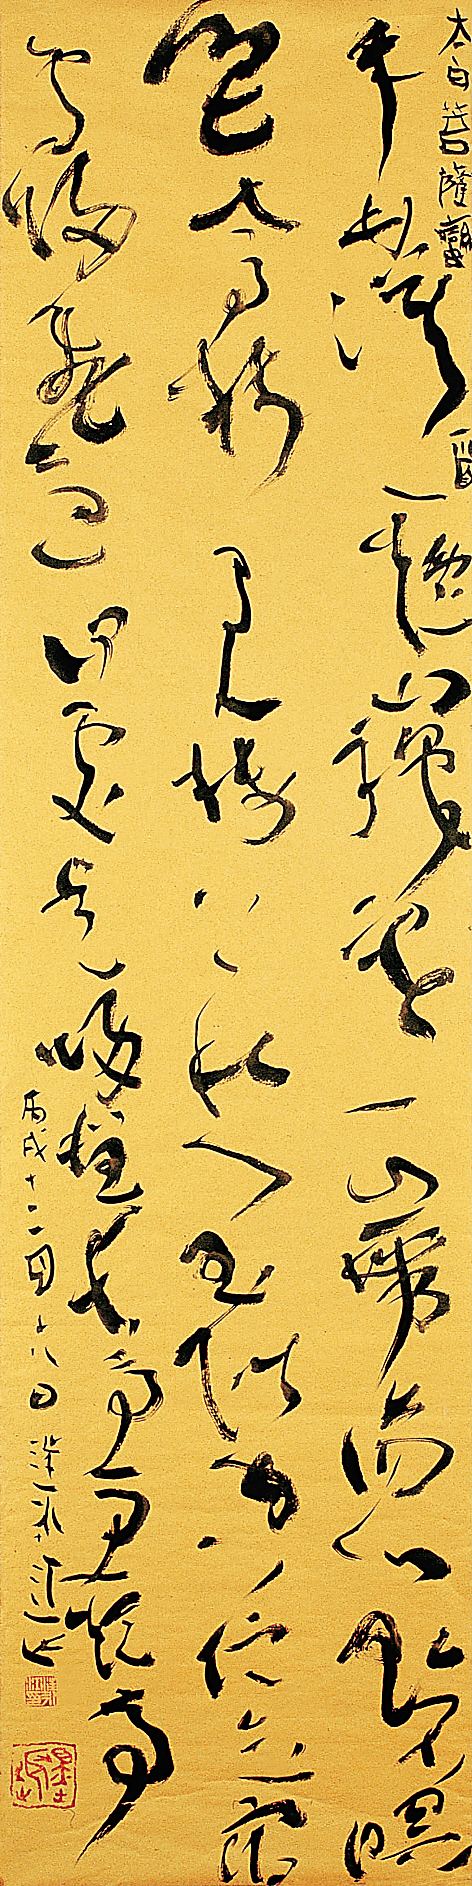 太白菩薩蠻一首
平林漠漠煙如織寒山一帶傷心碧暝
色入高樓有人樓上愁玉階空佇立宿
鳥歸飛急何處是歸程長亭更短亭
丙戌十二月十八日